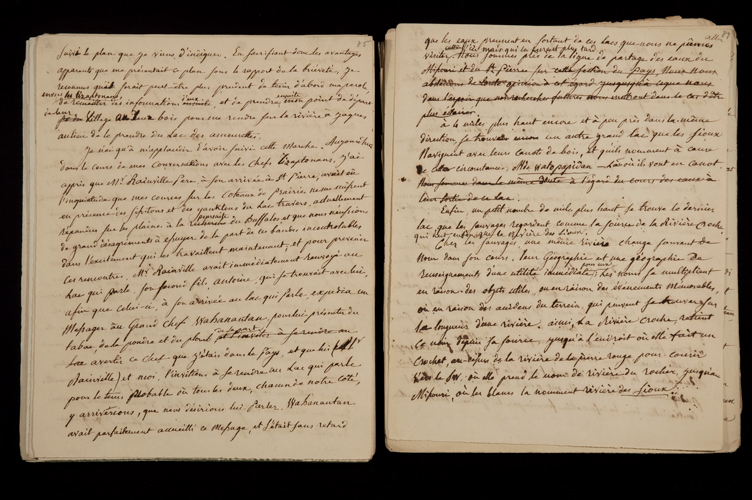 85
suivre le plan que je viens d'indiquer. En sacrifiant donc les avantages
apparents que me présentait ce plan sous le rapport de la brièveté, je
reconnus qu'il serait peut-être plus prudent de tenir d'abord ma parole
de des informations et de prendre mon point de départ
du Village aux bois pour me rendre sur la rivière à Jaques
au lieu de la prendre du Lac des
Je n'ai qu'à m'applaudir d'avoir suivi cette marche. Aujourd'hui
dans le cours de mes conversations avec les Chefs j'ai
appris que Mr. Rainville Père, à son arrivée à St Pierre, avait eu
l'inquiétude que mes courses sur les Coteaux de Prairie ne me missent
en présence des Sissitons et des yanktons du Lac Travers, actuellement
répandus sur les plaines à la recherche des Buffalos, et que nous n'eussions
de grands désagréments à éprouver de la part de ces bandes incontrolables,
dans l'excitement qui les travaillent maintenant; et pour prévenir
ces rencontres, Mr. Rainville avait immédiatement renvoyé au
Lac qui parle son second fils, Antoine, qui se trouvait avec lui,
afin que celui-ci, à son arrivée au lac qui parle, expédia un
Messager au Grand Chef Wahanantan, pour lui présenter du
tabac, de la poudre et du plomb, et à se rendre au
Lac avertir ce Chef que j'étais dans le Pays, et que lui
(Rainville) et moi, l'invitions à se rendre au Lac qui parle
pour le tems probable où tous les deux, chacun de notre côté,
y arriverions; que nous désirions lui parler. Wahanantan
avait parfaitement accueilli ce Message, et s'était sans retard
87
que les eaux prennent en sortant de ces lacs que nous ne pûmes
visiter. Nous sommes plus de la ligne de partage des eaux du
Missouri et du St Pierre sur cette section du Pays. Nous nous
dans l'espoir que nos recherches futures nous mettront dans le cas d'être
plus
à 4 milles plus haut encore et à peu près dans la même
direction, se trouve un autre grand lac que les Sioux
Naviguent avec leurs canots de bois, et qu'ils nomment à cause
de cette circonstance, où ils vont en canot
à l'égard du cours des eaux à
leur sortie de ce lac.
Enfin un petit nombre de milles plus haut, se trouve le dernier
lac que les sauvages regardent comme la source de la Rivière Croche
Chez les Sauvages une même rivière change souvent de
Nom dans son cours. Leur géographie est une géographie de
renseignements d'une utilité immédiate; les noms se multiplient
en raison des objets utiles, en raison des évènements mémorables,
ou en raison des accidens du terrein, qui peuvent se trouver sur
la longueur d'une rivière. ainsi, la Rivière Croche retient
ce nom depuis sa source jusqu'à l'endroit où elle fait un
Crochet, au-dessus de la rivière de la pierre rouge pour courir
dans le SW. où elle prend le nom de rivière du rocher jusqu'au
Missouri, où les blancs la nomment rivière des Sioux.